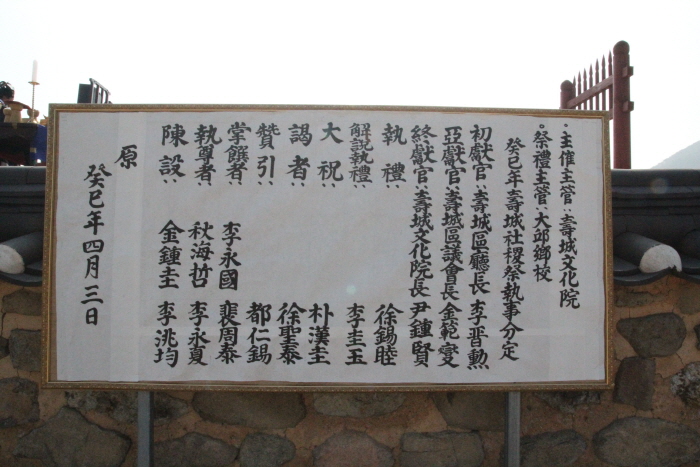 ·主催主管:壽城文化院
°祭禮主管:大邱鄉校
癸巳年壽城社稷祭執事分定
初獻官:壽城區廳長 李晋勳
亞獻官:壽城區議會長 金範燮
終獻官:壽城文化院長 尹鍾賢
執禮: 徐錫睦
解說執禮: 李圭玉
大祝: 朴漢圭
謁者: 徐聖泰
贊引: 都仁錫
掌饌者: 李永國 裵周泰
執尊者: 秋海哲 李永夏
陳設: 金鍾圭 李洮均
原
癸巳年四月三日